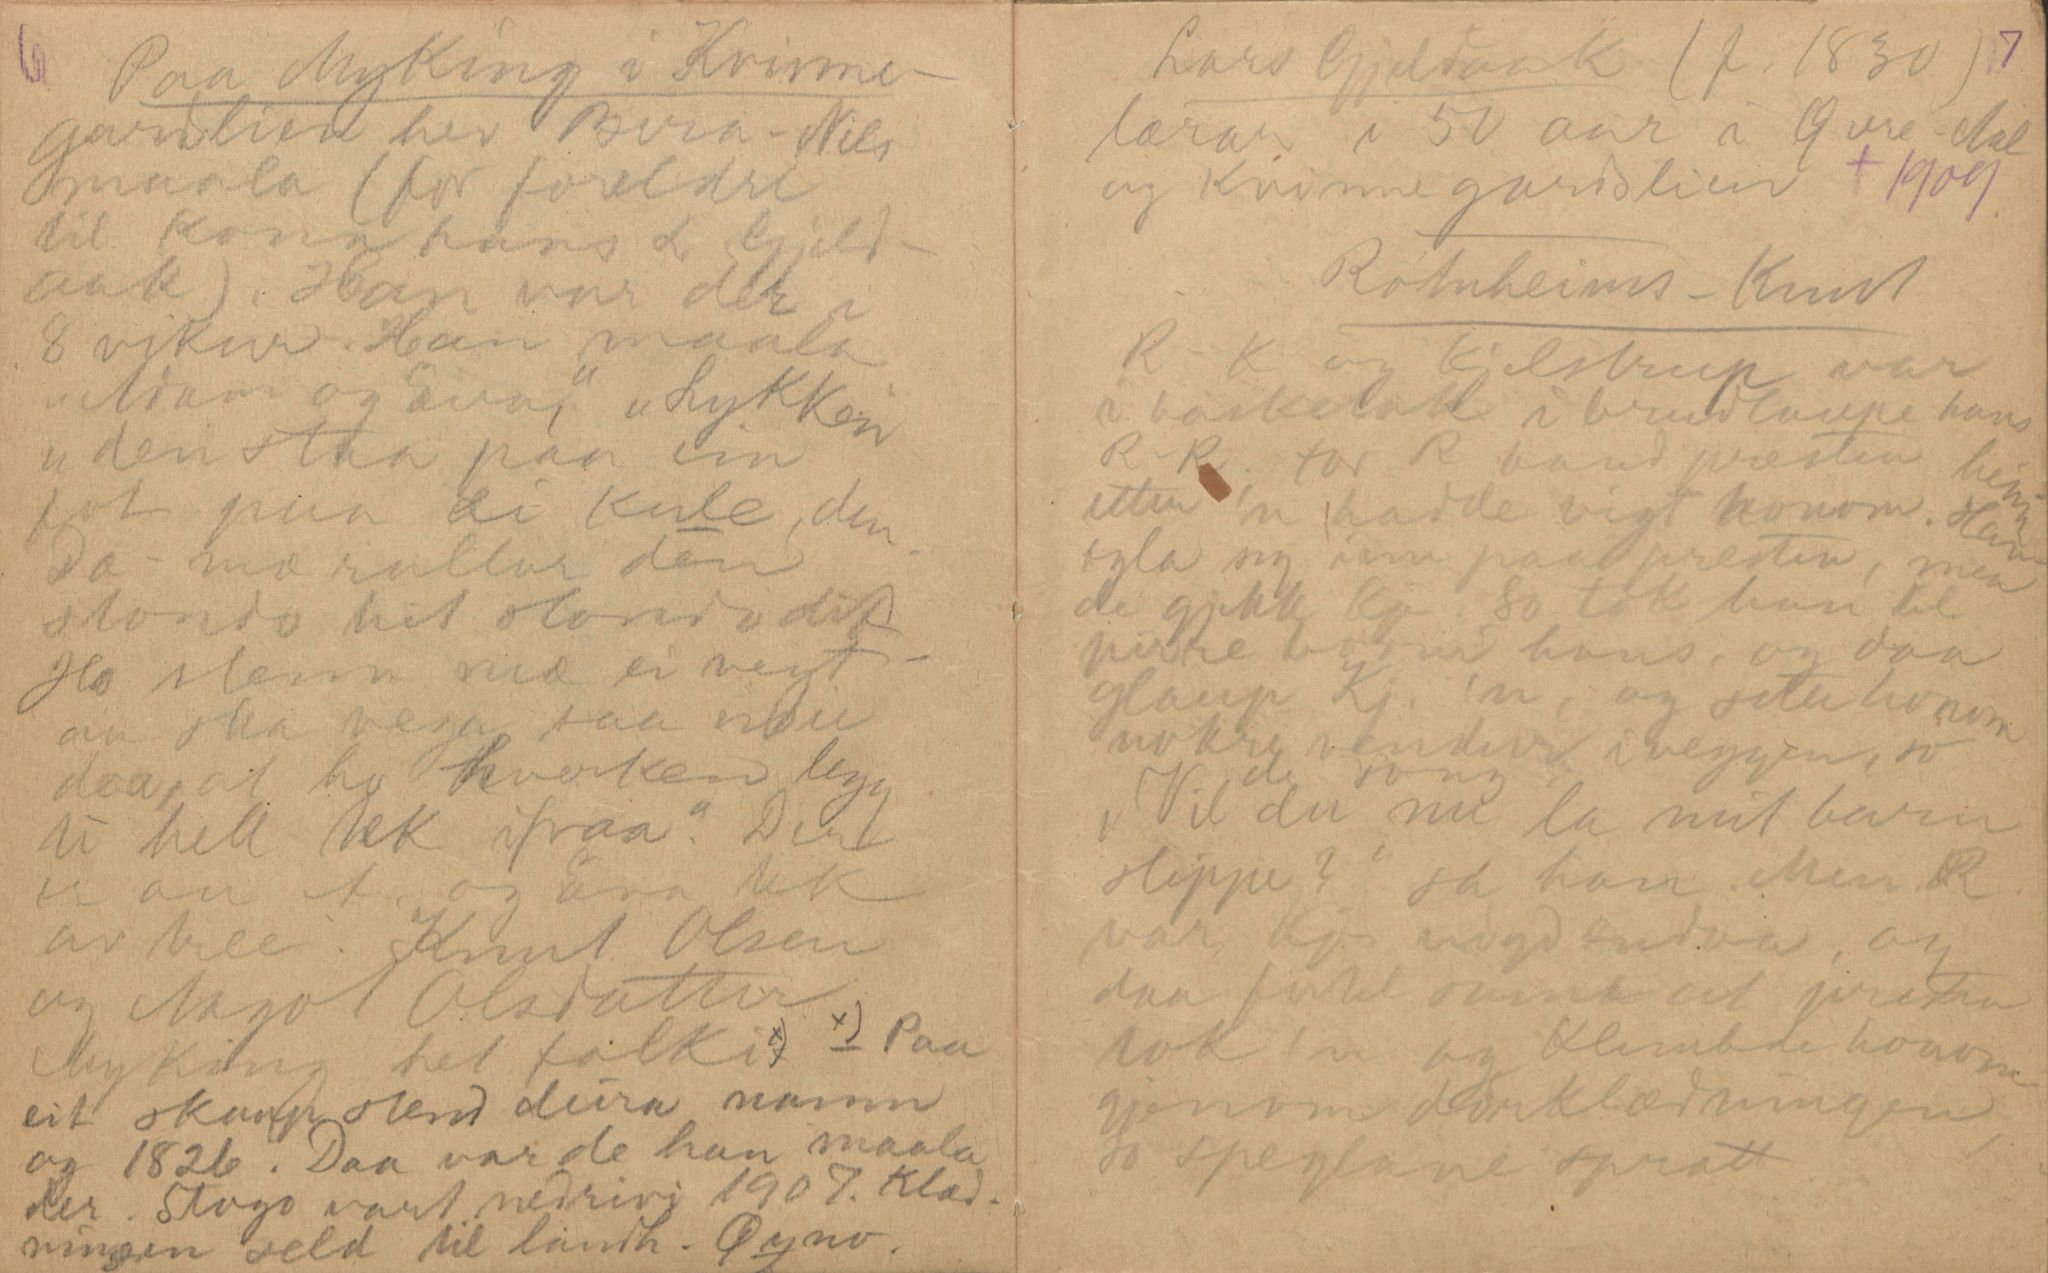 6
Paa Myking i Kvinne-
gardslien hev Bera-Nils
maala (for foreldre
til kona hans L Gjeld-
aak). Han var der i
8 vikur. Han maala
"Adam og Äva," "Lykken
"den staa paa ein
fot paa ei kule, den.
Da-mæ rullar den
stondo hit stondo dit
Ho stenn mæ ei vegt-
au ska vega saa nøie
daa, at ho hverken legg
ti hell tek ifraa." Dert
er au A. og Äva tek
av treé. Knut Olsen
og Magol Olsdatter
Myking het folki x)
x) Paa
eit skaap stend deira namn
og 1826. Daa var de han maala
der. Stogo vart nedrivi 1907. Klæd-
ningen seld til landh. Øyno.
7
Lars Gjeldaak (f. 1830)
lærar i 50 aar i Øvre-Aal
og Kvinnegardslien + 1909.
Rotnheims-Knut
R-K og Kjelstrup var
i basketak i brudlaupe hans
R-K. for R band presten
etter 'n hadde vigt honom. Han
egla seg inn paa presten, men
de gjekk Kj. So tok han til
pirre borni hans, og daa
glaup Kj. 'n, og sette honom
nokre vendur i veggen, so
de song
"Vil du nu la mit barn
slippe?" sa han. Men R.
var Kj- uvgd endaa, og
daa fortel summe at presten
tok 'n og klembde honom
gjenom dørklædningen,
so speglane spratt